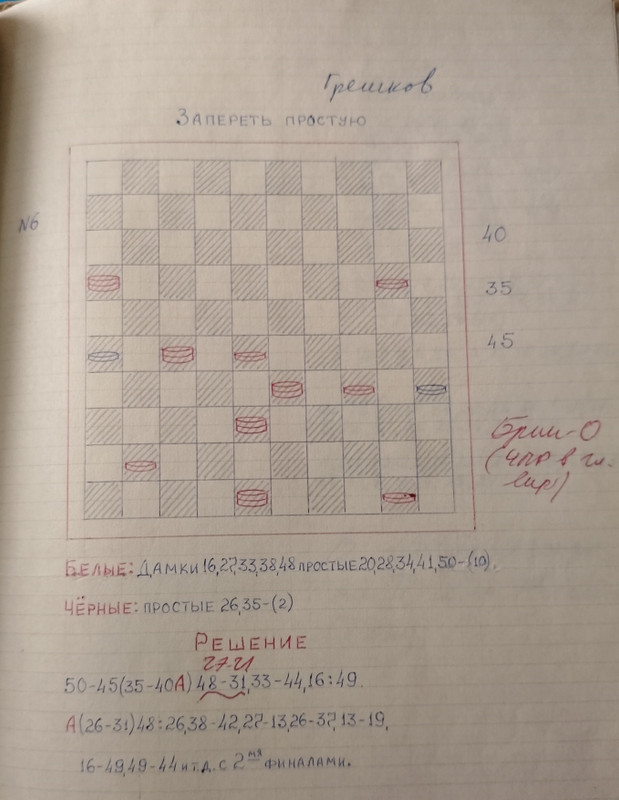 Грешков
ЗАПЕРЕТЬ ПРОСТУЮ
N6
40
35
45
БЕЛЫЕ: ДАМКИ 16,27,33,38,48 ПРОСТЫЕ 20,28,34,41,50-(10).
ЧЁРНЫЕ: ПРОСТЫЕ 26,35-(2)
РЕШЕНИЕ
27-21
50-45(35-40А) 48-31,33-44,16:49.
А(26-31)48:26,38-42,27-13,26-37,13-19,
16-49,49-44 И Т.Д. С 2МЯ ФИНАЛАМИ.